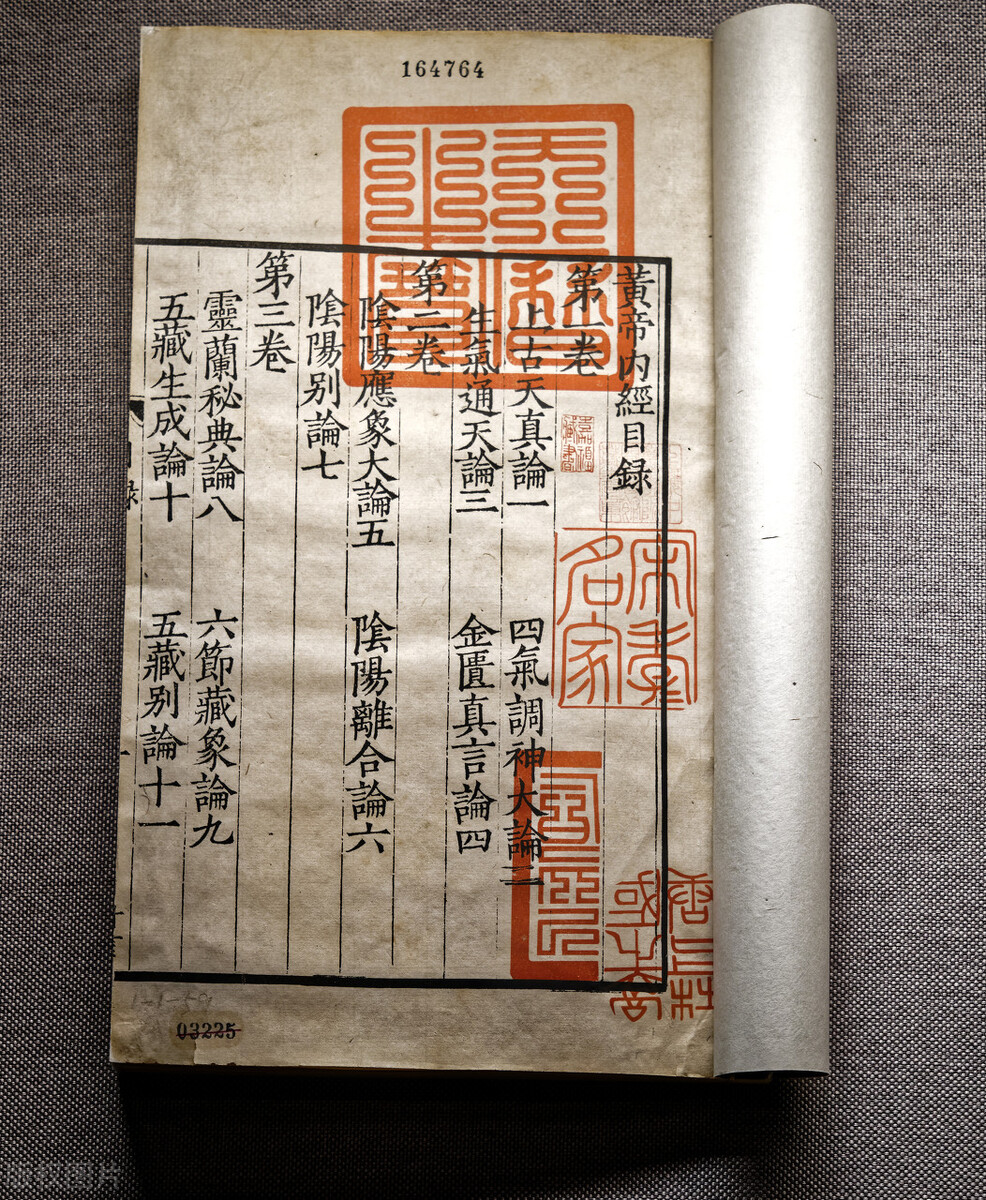 164764
黃帝內經目録
第一卷
上古天真論一 四氣調神大論二
生氣通天論三 金匱真言論四
第二卷
陰陽應象大論五 陰陽離合論六
陰陽别論七
第三卷
靈蘭秘典論八 六節藏象論九
五藏生成論十 五藏别論十一
録
嘉禎
藏書
宋孝
名家
03225
版权图片